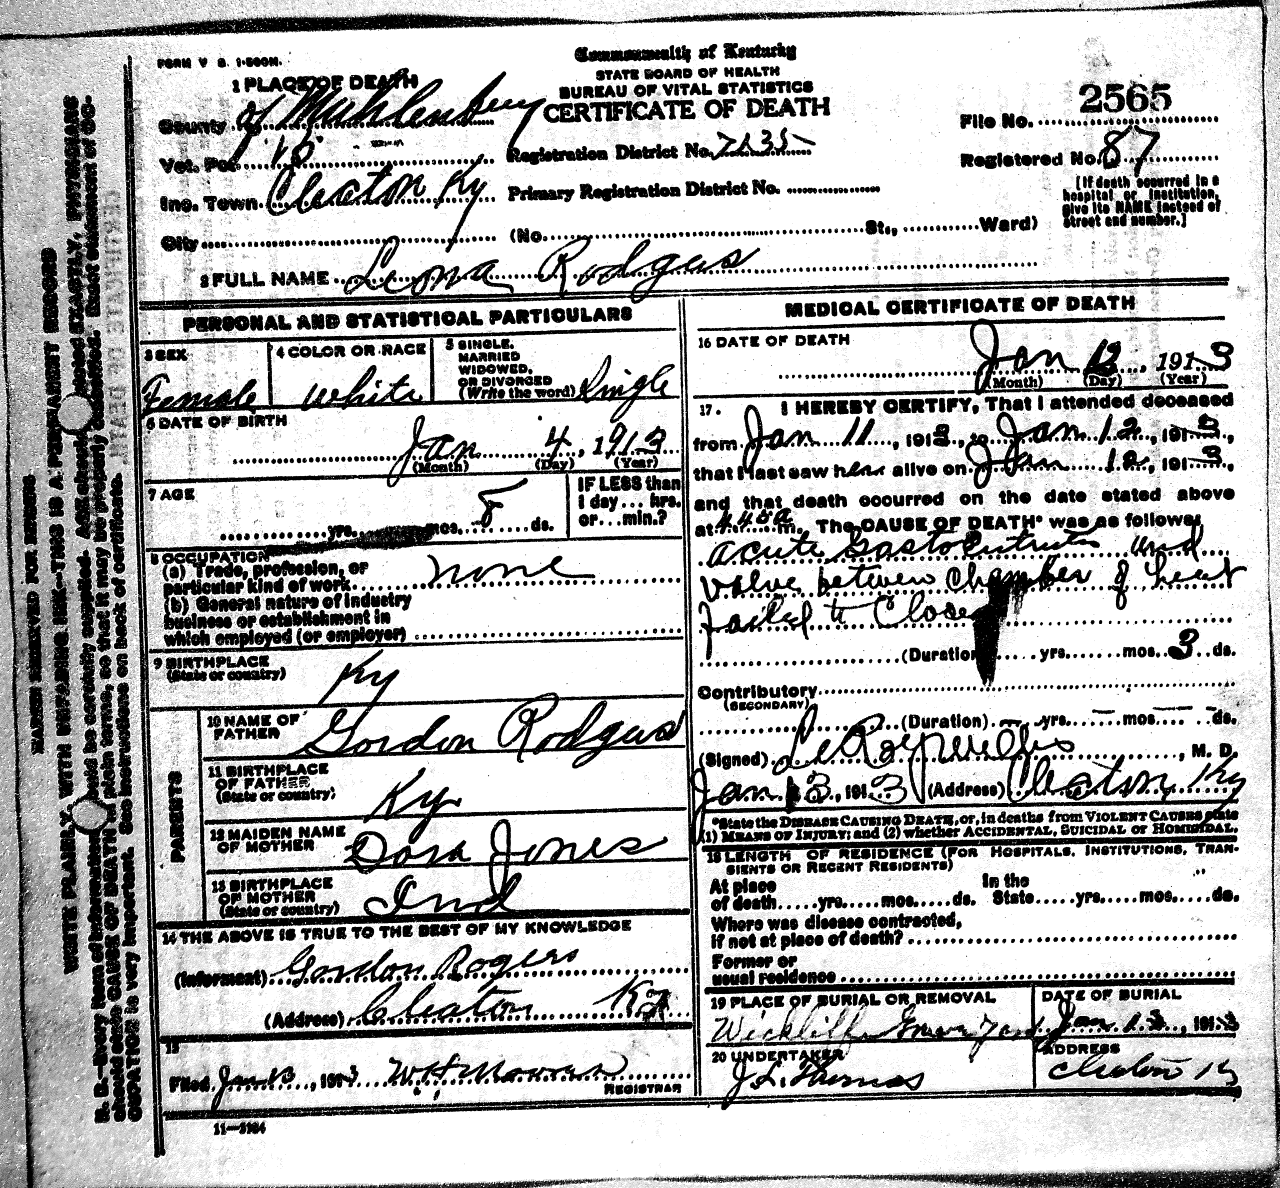 FORM V. S. 1-500M.
Commonwealth of Kentucky
STATE BOARD OF HEALTH
BUREAU OF VITAL STATISTICS
CERTIFICATE OF DEATH
1 PLACE OF DEATH
County of Muhlenberg
Vot. Pct. 15
Registration District No. 7235
Inc. Town Cleaton Ky
Primary Registration District No.
City (No. St., Ward)
File No. 2565
Registered No. 87
[If death occurred in a
hospital or institution,
give its NAME instead of
street and number.]
2 FULL NAME Lena Rodgers
PERSONAL AND STATISTICAL PARTICULARS
3 SEX Female
4 COLOR OR RACE White
5 SINGLE,
MARRIED
WIDOWED,
OR DIVORCED
(Write the word) Single
6 DATE OF BIRTH
Jan 4, 1913
(Month) (Day) (Year)
7 AGE
yrs. mos. 8 ds.
IF LESS than
1 day... hrs.
or... min.?
8 OCCUPATION
(a) Trade, profession, or
particular kind of work none
(b) General nature of industry
business or establishment in
which employed (or employer)
9 BIRTHPLACE
(State or country) Ky
PARENTS
10 NAME OF
FATHER Gordon Rodgers
11 BIRTHPLACE
OF FATHER
(State or country) Ky
12 MAIDEN NAME
OF MOTHER Dora Jones
13 BIRTHPLACE
OF MOTHER
(State or country) Ind
14 THE ABOVE IS TRUE TO THE BEST OF MY KNOWLEDGE
(Informant) Gordon Rogers
(Address) Cleaton Ky
15
Filed Jan 13, 1913 W H
REGISTRAR
11—3184
MEDICAL CERTIFICATE OF DEATH
16 DATE OF DEATH
Jan 12, 1913
(Month) (Day) (Year)
17. I HEREBY CERTIFY, That I attended deceased
from Jan 11, 1913, to Jan 12, 1913,
that I last saw her alive on Jan 12, 1913,
and that death occurred on the date stated above
at m. The CAUSE OF DEATH* was as follows
acute Gastoentritis and
valve between chamber of heart
failed to Close
(Duration) yrs. mos. 3 ds.
Contributory
(SECONDARY)
(Duration) — yrs. — mos. — ds.
(Signed) , M. D.
Jan 13, 1913 (Address) Cleaton Ky
*State the DISEASE CAUSING DEATH, or, in deaths from VIOLENT CAUSES state
(1) MEANS OF INJURY; and (2) whether ACCIDENTAL, SUICIDAL or HOMICIDAL.
18 LENGTH OF RESIDENCE (FOR HOSPITALS, INSTITUTIONS, TRAN-
SIENTS OR RECENT RESIDENTS)
At place In the
of death yrs. mos. ds. State yrs. mos. ds.
Where was disease contracted,
if not at place of death?
Former or
usual residence
19 PLACE OF BURIAL OR REMOVAL
Wickliffe Grave Yard
DATE OF BURIAL
Jan 13, 1913
20 UNDERTAKER
J. L. Thomas
ADDRESS
Cleaton Ky
MARGIN RESERVED FOR BINDING
WRITE PLAINLY, WITH UNFADING INK—THIS IS A PERMANENT RECORD
N. B.—Every item of information should be carefully supplied. AGE should be stated EXACTLY, PHYSICIANS
should state CAUSE OF DEATH in plain terms, so that it may be properly classified. Exact statement of OC-
CUPATION is very important. See instructions on back of certificate.